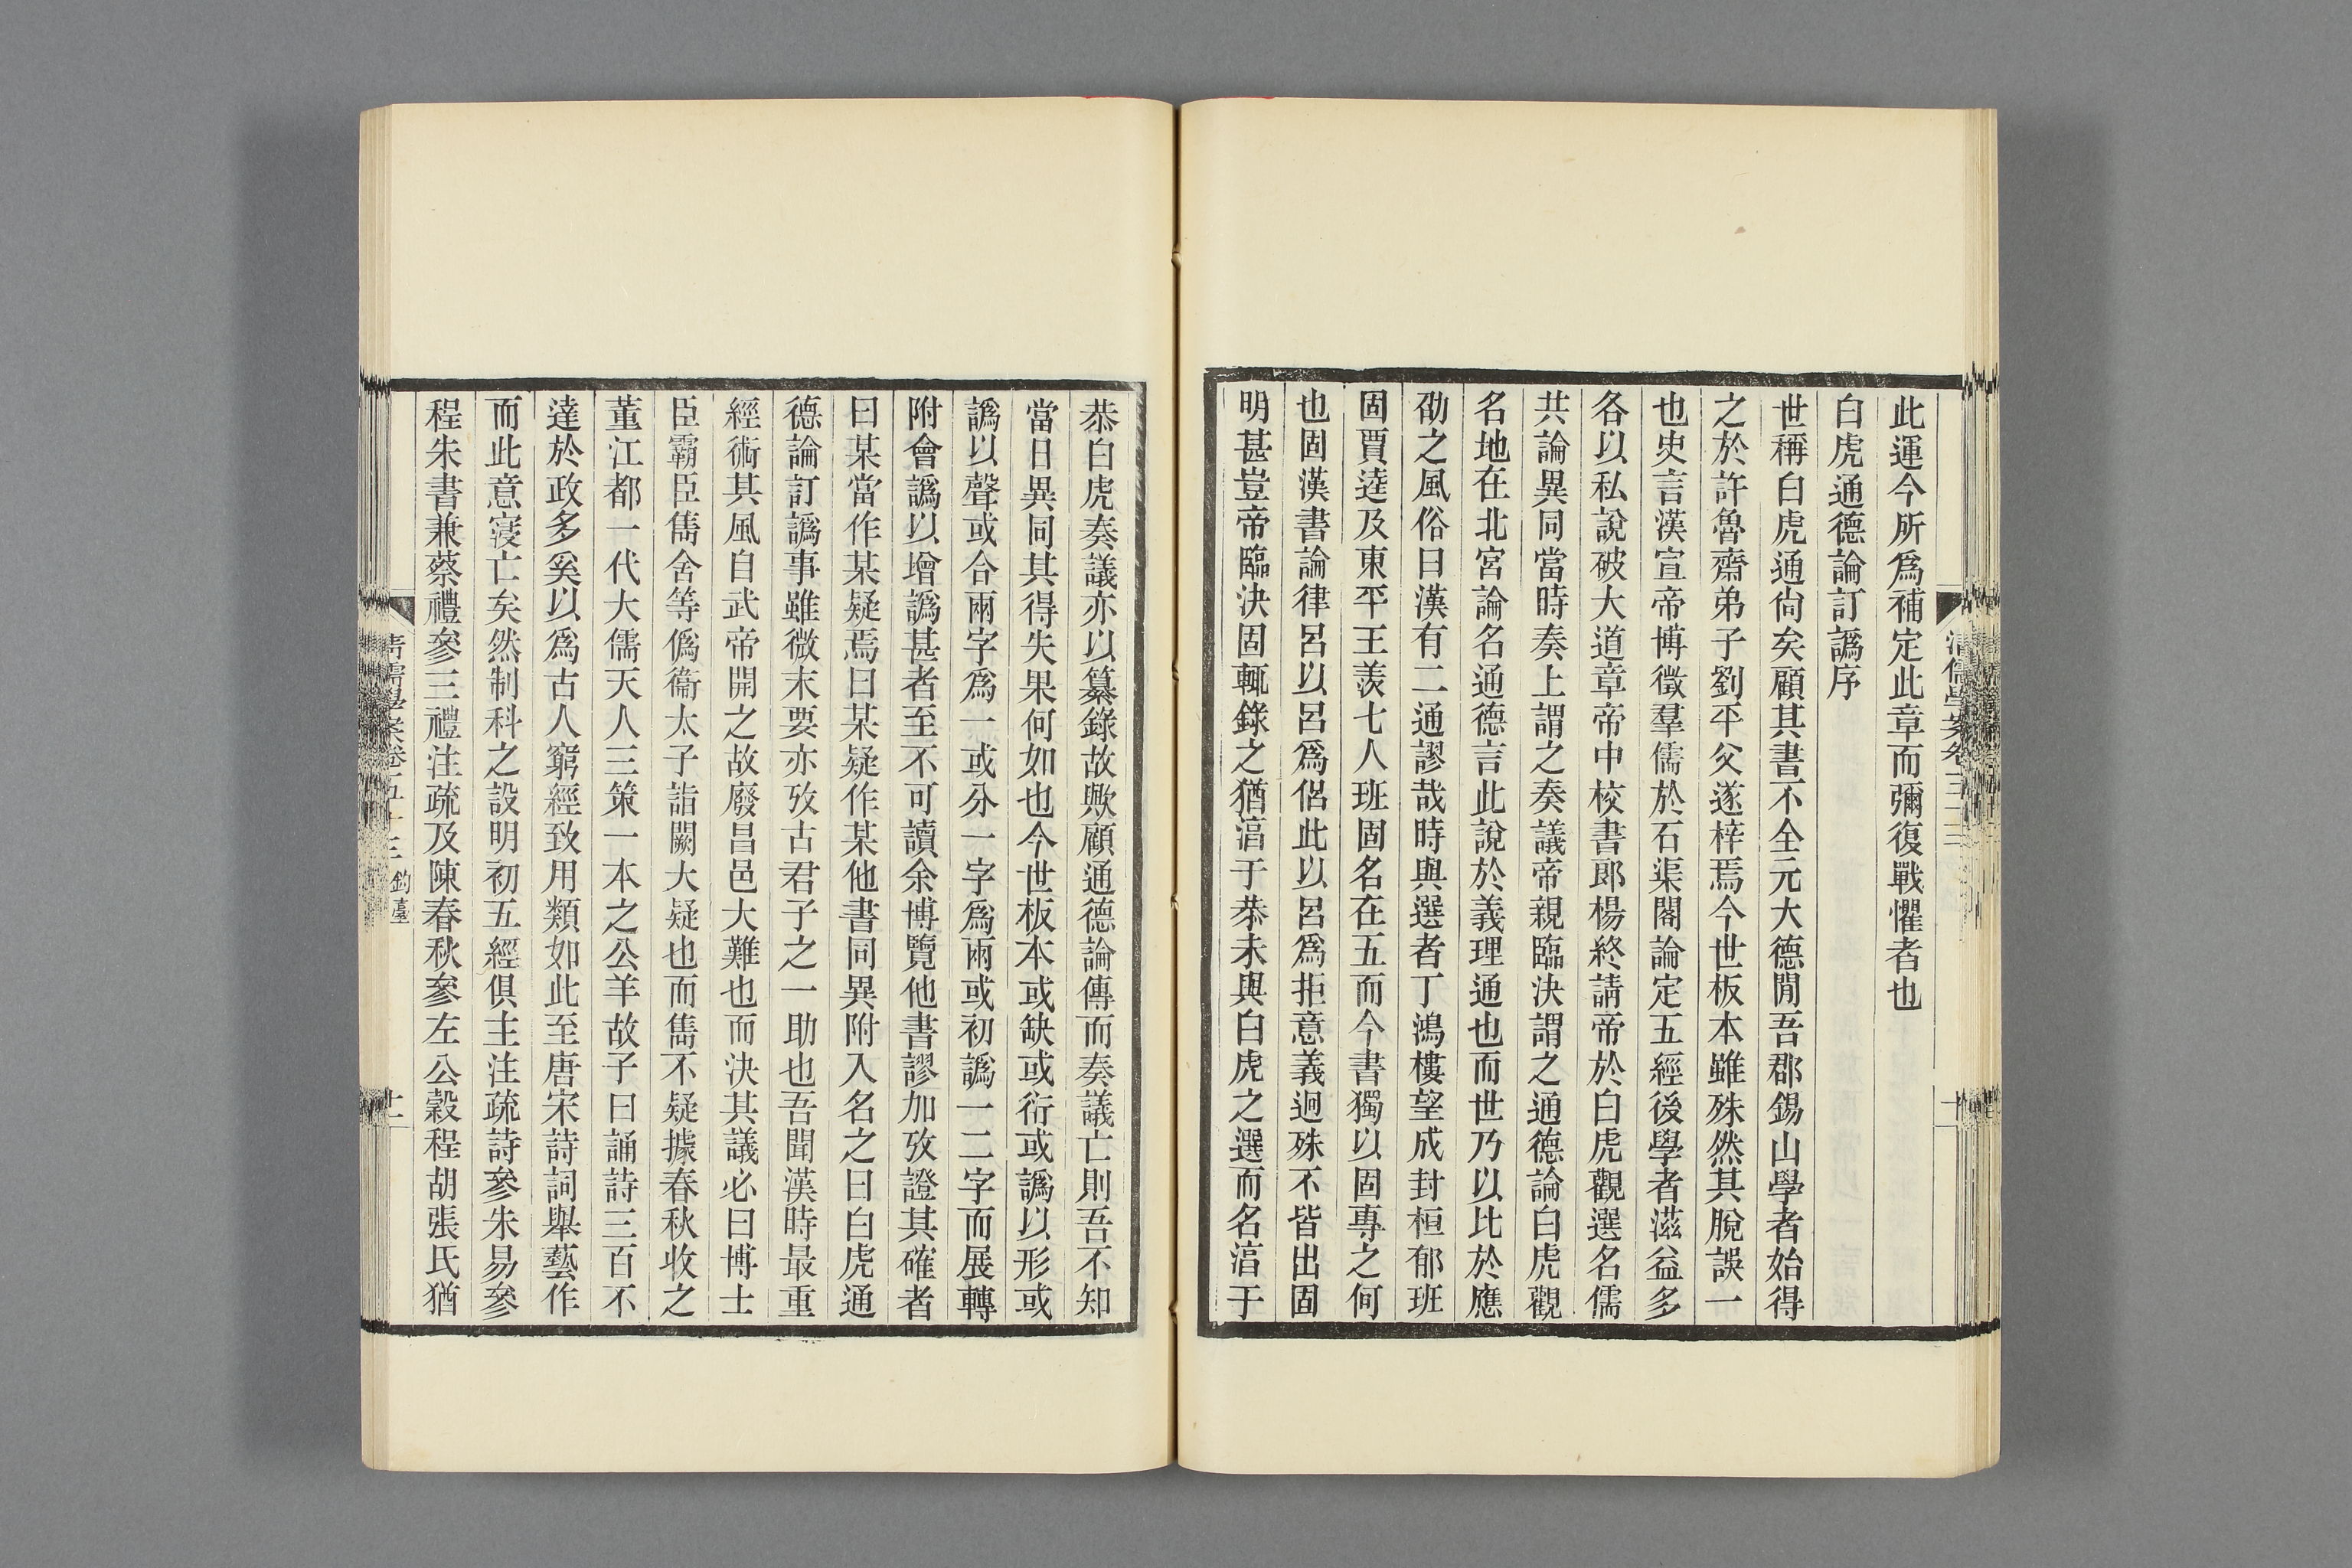 此運今所爲補定此章而彌復戰懼者也
白虎通德論訂譌序
世稱白虎通尙矣顧其書不全元大德閒吾郡錫山學者始得
之於許魯齋弟子劉平父遂梓焉今世板本雖殊然其脫誤一
也史言漢宣帝博徵羣儒於石渠閣論定五經後學者滋益多
各以私說破大道章帝中校書郎楊終請帝於白虎觀選名儒
共論異同當時奏上謂之奏議帝親臨決謂之通德論白虎觀
名地在北宮論名通德言此說於義理通也而世乃以比於應
劭之風俗曰漢有二通謬哉時與選者丁鴻樓望成封桓郁班
固賈逵及東平王羨七人班固名在五而今書獨以固專之何
也固漢書論律呂以呂爲侶此以呂爲拒意義迥殊不皆出固
明甚豈帝臨決固輒錄之猶湻于恭未與白虎之選而名湻于
恭白虎奏議亦以纂錄故歟顧通德論傳而奏議亡則吾不知
當日異同其得失果何如也今世板本或缺或衍或譌以形或
譌以聲或合兩字爲一或分一字爲兩或初譌一二字而展轉
附會譌以增譌甚者至不可讀余博覽他書謬加攷證其確者
曰某當作某疑焉曰某疑作某他書同異附入名之曰白虎通
德論訂譌事雖微末要亦攷古君子之一助也吾聞漢時最重
經術其風自武帝開之故廢昌邑大難也而決其議必曰博士
臣霸臣雋舍等僞衞太子詣闕大疑也而雋不疑據春秋收之
董江都一代大儒天人三策一本之公羊故子曰誦詩三百不
達於政多奚以爲古人窮經致用類如此至唐宋詩詞舉藝作
而此意寖亡矣然制科之設明初五經俱主注疏詩參朱易參
程朱書兼蔡禮參三禮注疏及陳春秋參左公穀程胡張氏猶
鈞臺